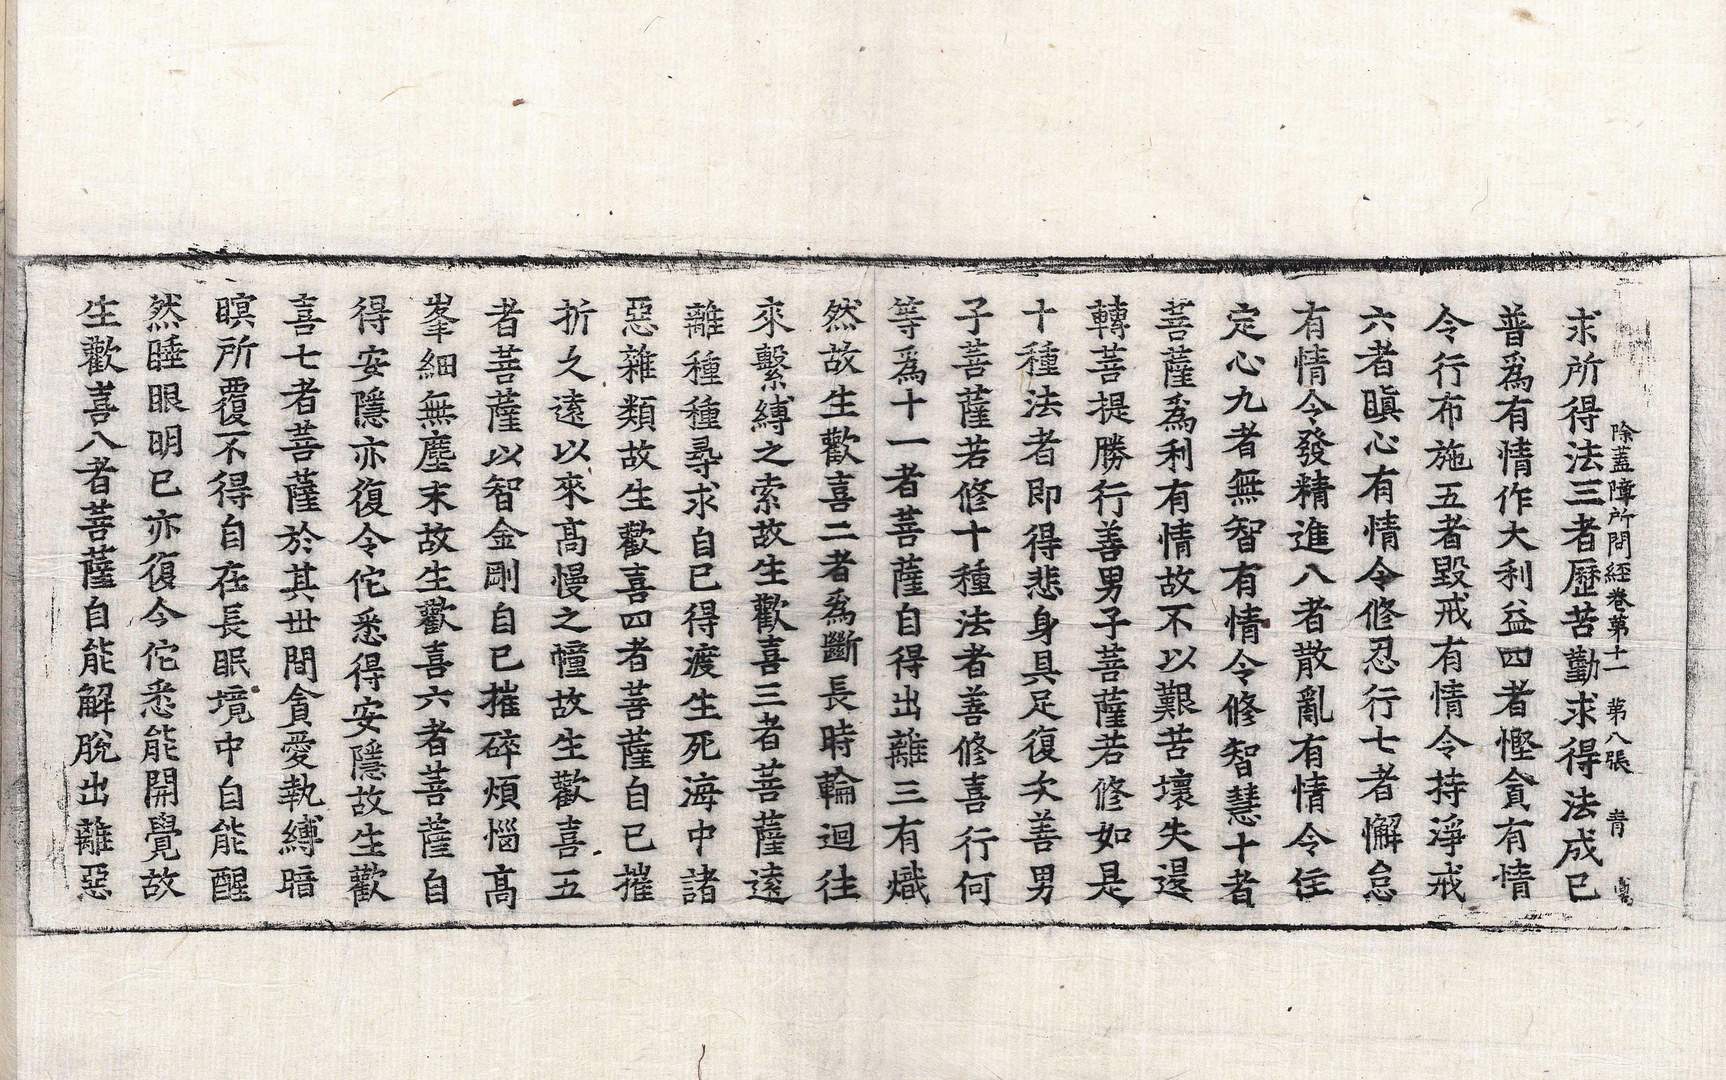 除蓋障所問經卷第十一　第八張　青
求所得法三者歷苦勤求得法成已
普爲有情作大利益四者慳貪有情
令行布施五者毀戒有情令持淨戒
六者瞋心有情令修忍行七者懈怠
有情令發精進八者散亂有情令住
定心九者無智有情令修智慧十者
菩薩爲利有情故不以艱苦壞失退
轉菩提勝行善男子菩薩若修如是
十種法者即得悲身具足復次善男
子菩薩若修十種法者善修喜行何
等爲十一者菩薩自得出離三有熾
然故生歡喜二者爲斷長時輪迴往
來繫縛之索故生歡喜三者菩薩遠
離種種尋求自已得渡生死海中諸
惡雜類故生歡喜四者菩薩自已摧
折久遠以來高慢之幢故生歡喜五
者菩薩以智金剛自已摧碎煩惱高
峯細無塵末故生歡喜六者菩薩自
得安隱亦復令佗悉得安隱故生歡
喜七者菩薩於其世間貪愛執縛暗
瞑所覆不得自在長眠境中自能醒
然睡眼明已亦復令佗悉能開覺故
生歡喜八者菩薩自能解脫出離惡